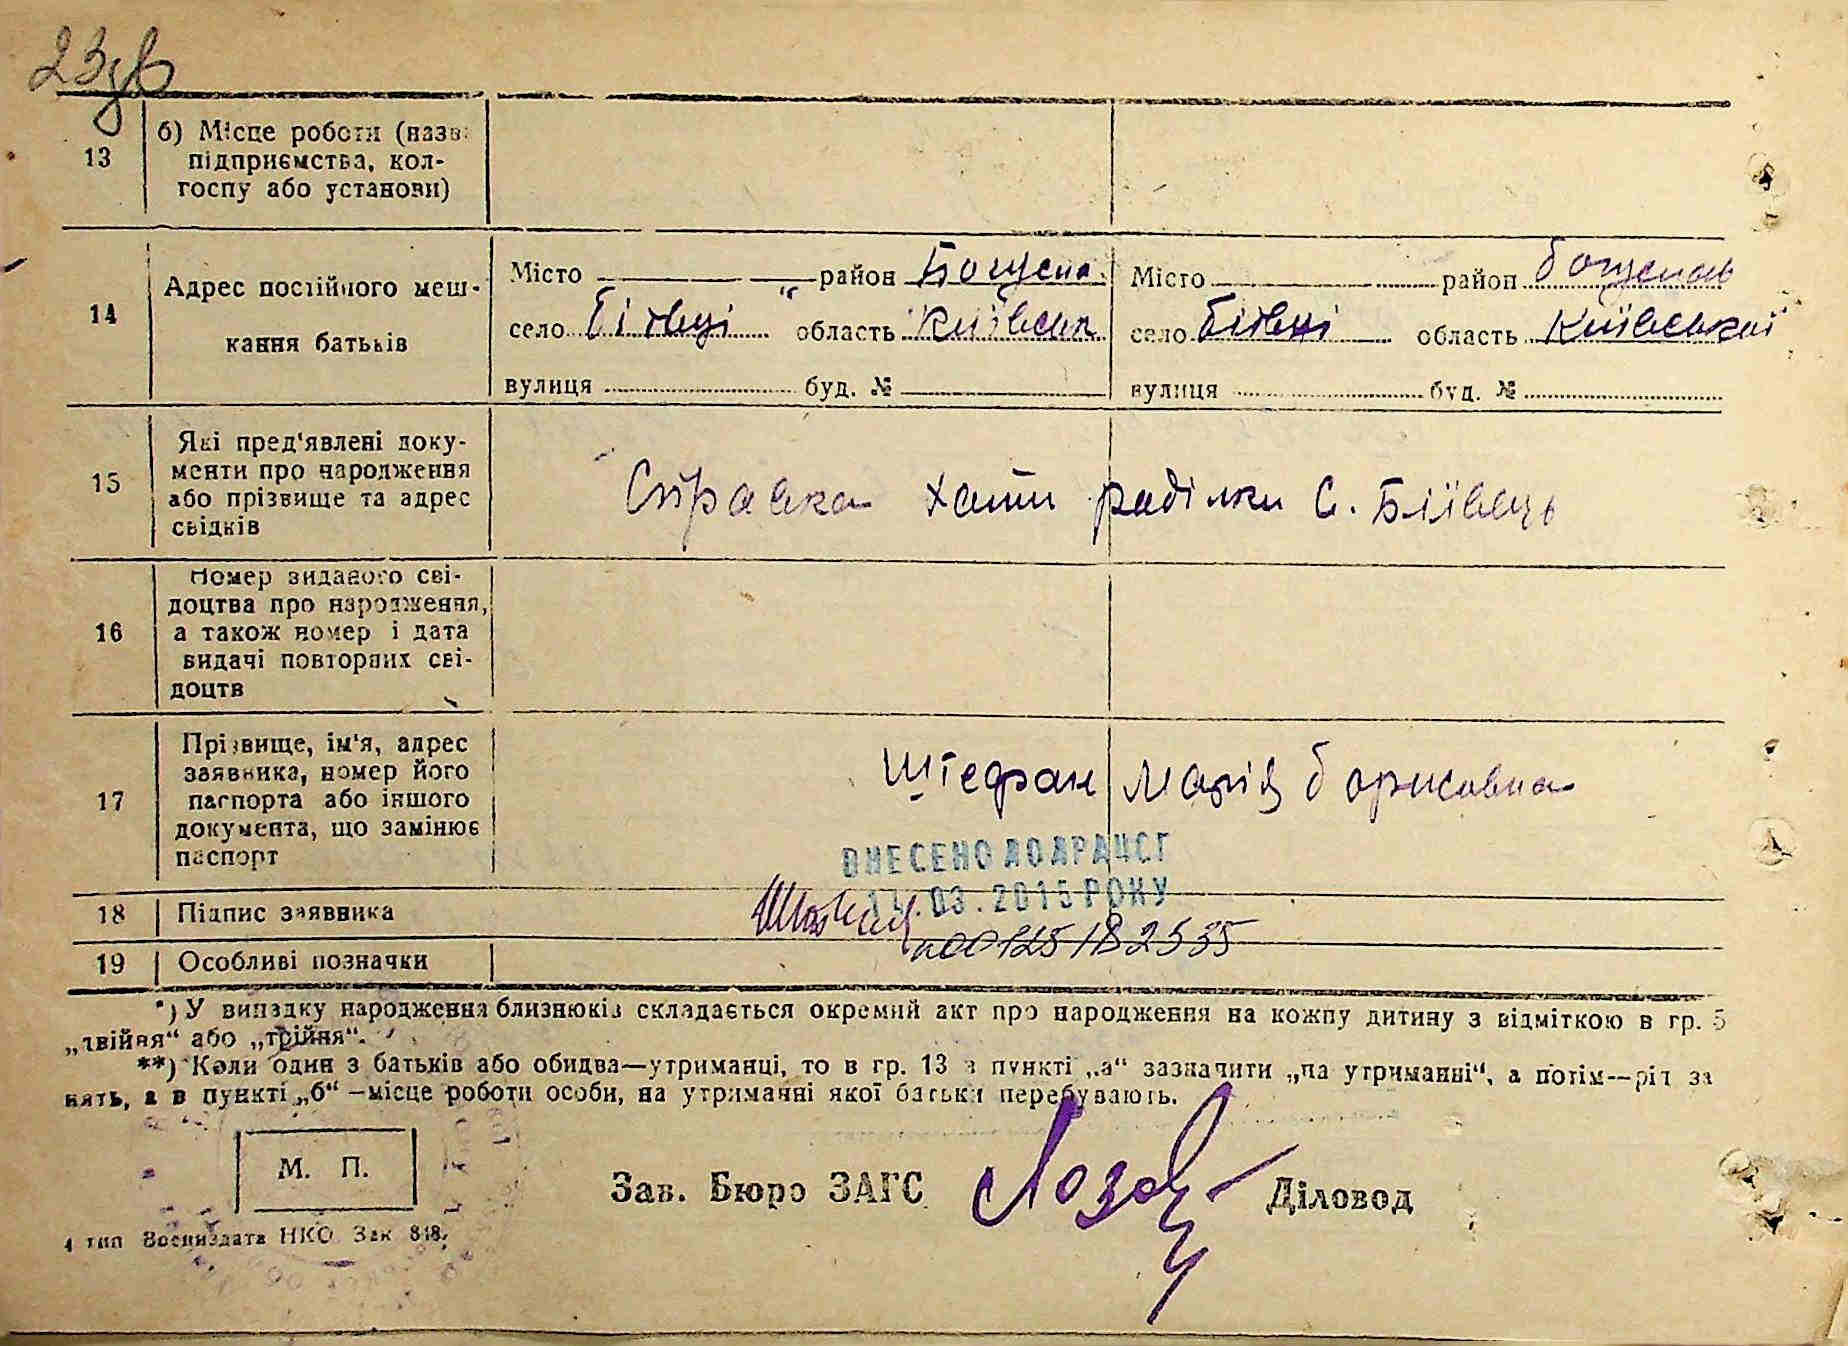 23зв
13
б) Місце роботи (назва
підприємства, кол-
госпу або установи)
14
Адрес постійного меш-
кання батьків
Місто район Богусла.
село Бівці область Київськ
вулиця буд. №
Місто район Богуслав
село Бівці область Київської
вулиця буд. №
15
Які пред'явлені доку-
менти про народження
або прізвище та адрес
свідків
Справка хати роділки С. Біївець
16
Номер виданого сві-
доцтва про народження,
а також номер і дата
видачі повторних сві-
доцтв
17
Прізвище, ім'я, адрес
заявника, номер його
паспорта або іншого
документа, що замінює
паспорт
Штефан Марія Борисовна
ВНЕСЕНО ДО ДРАЦСГ
03. 2015 РОКУ
18 Підпис заявника
00125182535
19 Особливі позначки
*) У випадку народження близнюків складається окремий акт про народження на кожну дитину з відміткою в гр. 5
„двійня“ або „трійня“.
**) Коли один з батьків або обидва—утриманці, то в гр. 13 в пункті „а“ зазначити „на утриманні“, а потім—рід за
нять, а в пункті „б“ —місце роботи особи, на утриманні якої батьки перебувають.
М. П.
Зав. Бюро ЗАГС Діловод
4 тип Воениздата НКО Зак 848.